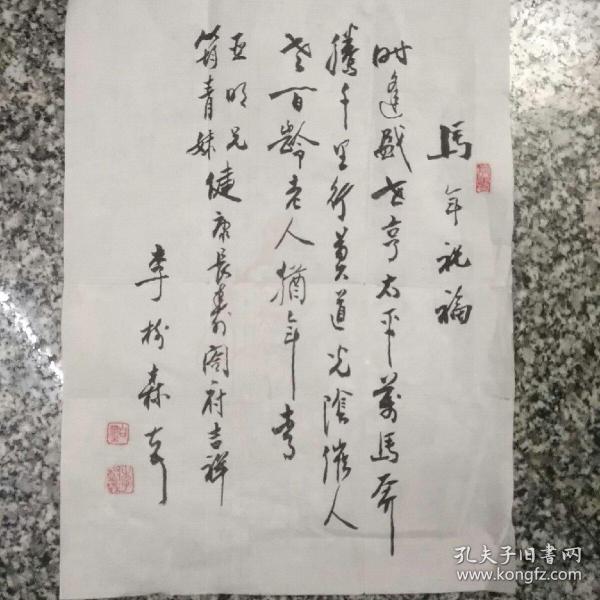 馬年祝福
时逢盛世亨太平萬馬奔
騰千里行黄道光陰催人
老百齡老人猶年青
亚明兄
筠青妹健康長壽阖府吉祥
李樹森
孔夫子旧書网
www.kongfz.com